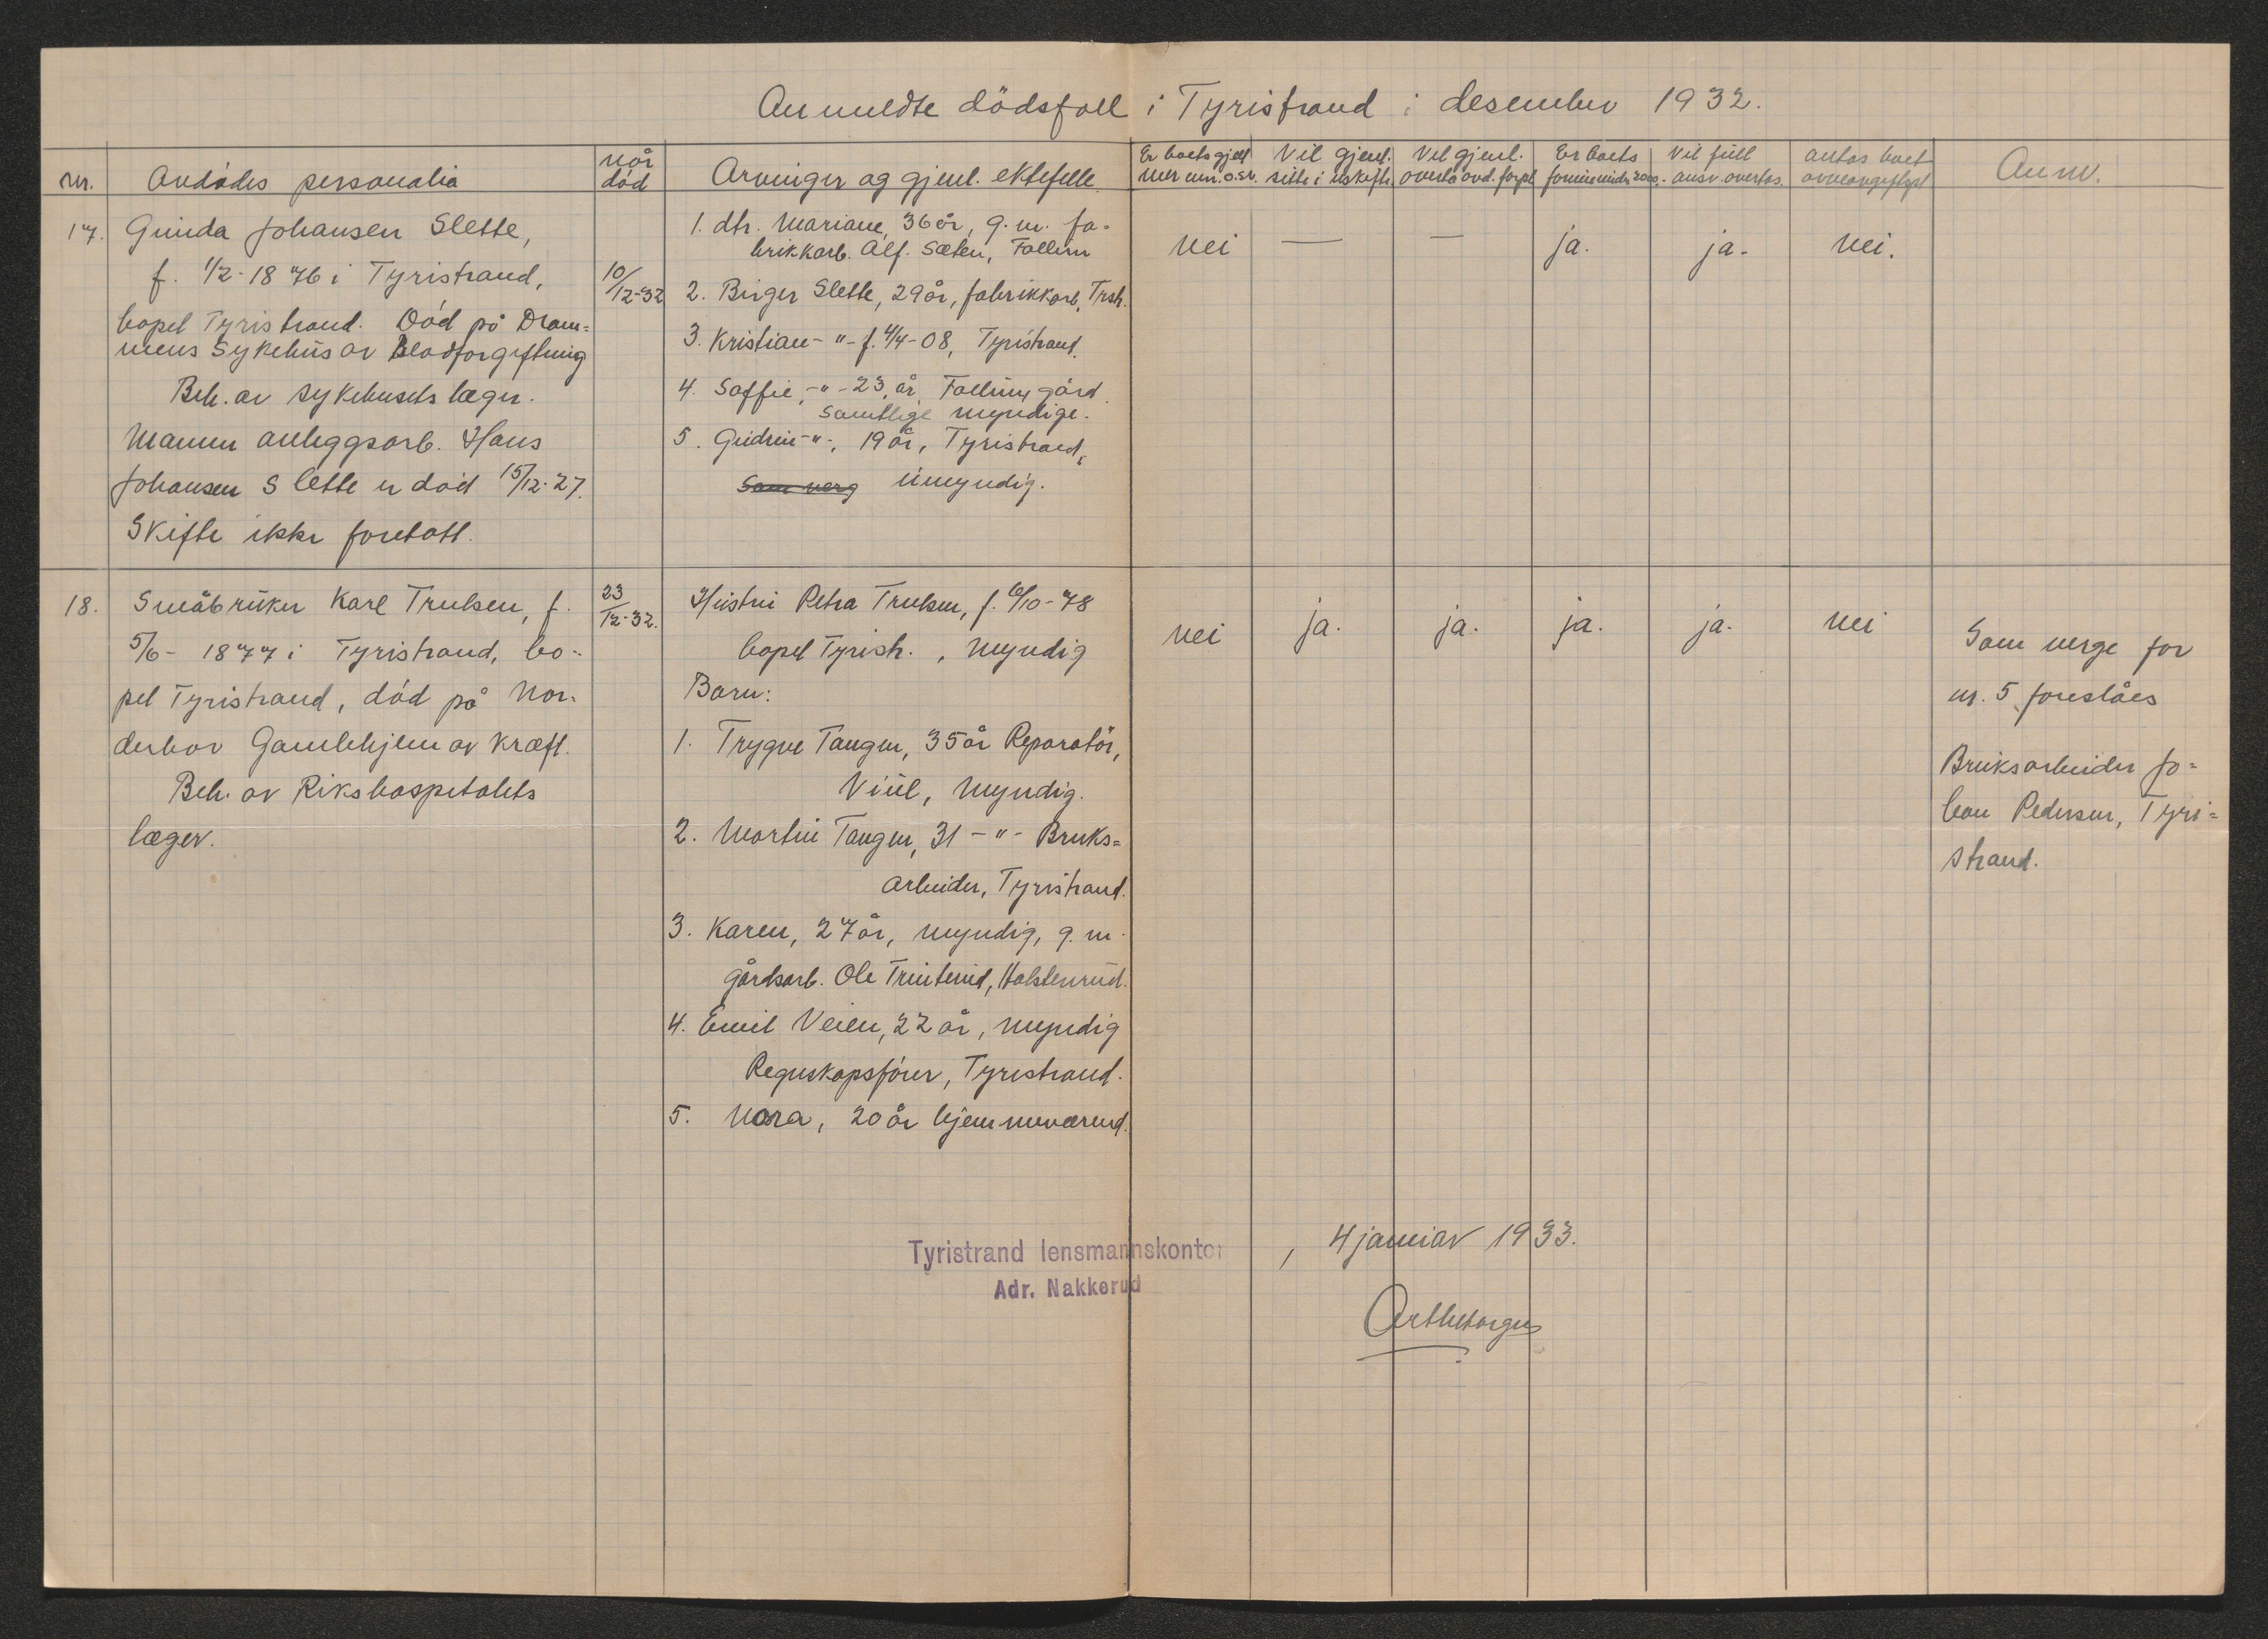 Anmeldte dödsfall i Tyristrand i desember 1932.
Nr.
Avdödes personalia
Når
död
Arvinger og gjenl. ektefelle.
Er boets gjeld
mer enn o.sv.
Vil gjenl.
sitte i uskifte
Vil gjenl.
overta avd. forpl.
Er boets
formue mindre 2000.-
Vil full
ansv. overtas.
Antas boet
arveavgiftspl.
Anm.
17.
Gunda Johansen Slette,
f. 1/2-1876 i Tyristrand,
bopel Tyristrand. Död på Dram=
mens Sykehus av Blodforgiftning
Beh. av sykehusets læger.
Mannen anleggsarb. Hans
Johansen Slette er död 15/12-27.
Skifte ikke foretatt.
10/12-32
1. dtr. Mariane, 36 år, g.m. fa-
brikkarb. Alf. Sæten, Follum
2. Birger Slette, 29 år, fabrikkarb, Trstr.
3. Kristian -"- f. 4/4-08, Tyristrand.
4. Soffie, -"- 23 år, Follum gård.
Samtlige myndige.
5. Gudrun -"-, 19 år, Tyristrand,
Som verg umyndig.
nei
—
—
ja.
ja-
nei.
18.
Småbruker Karl Trulsen, f.
5/6- 1877 i Tyristrand, bo-
pel Tyristrand, död på Nor-
derhov Gamlehjem av Kræft.
Beh. av Rikshospitalets
læger.
23/12-32.
Hustru Petra Trulsen, f. 6/10-78
bopel Tyristr., myndig
Barn:
1. Trygve Tangen, 35 år Reparatör,
Viul, Myndig.
2. Martin Tangen, 31 -"- Bruks=
arbeider, Tyristrand.
3. Karen, 27 år, myndig, g.m.
gårdsarb. Ole Trinterud, Holstenrud.
4. Emil Veien, 22 år, myndig
Regnskapsförer, Tyristrand.
5. Nora, 20 år hjemmeværend.
nei
ja.
ja.
ja.
ja-
nei
Som verge for
nr. 5 foreslåes
Bruksarbeider Jo=
han Pedersen, Tyri=
strand.
Tyristrand lensmannskontor, 4 januar 1933.
Adr. Nakkerud